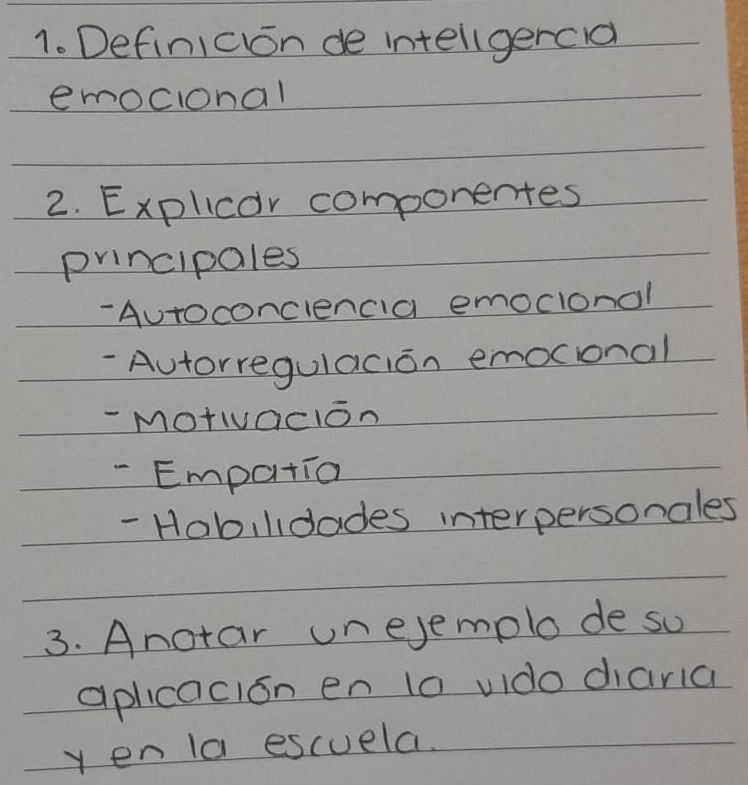 1. Definición de inteligencia
emocional
2. Explicar componentes
principales
- Autoconciencia emocional
- Autorregulación emocional
- Motivación
- Empatía
- Habilidades interpersonales
3. Anotar un ejemplo de su
aplicación en la vida diaria
y en la escuela.